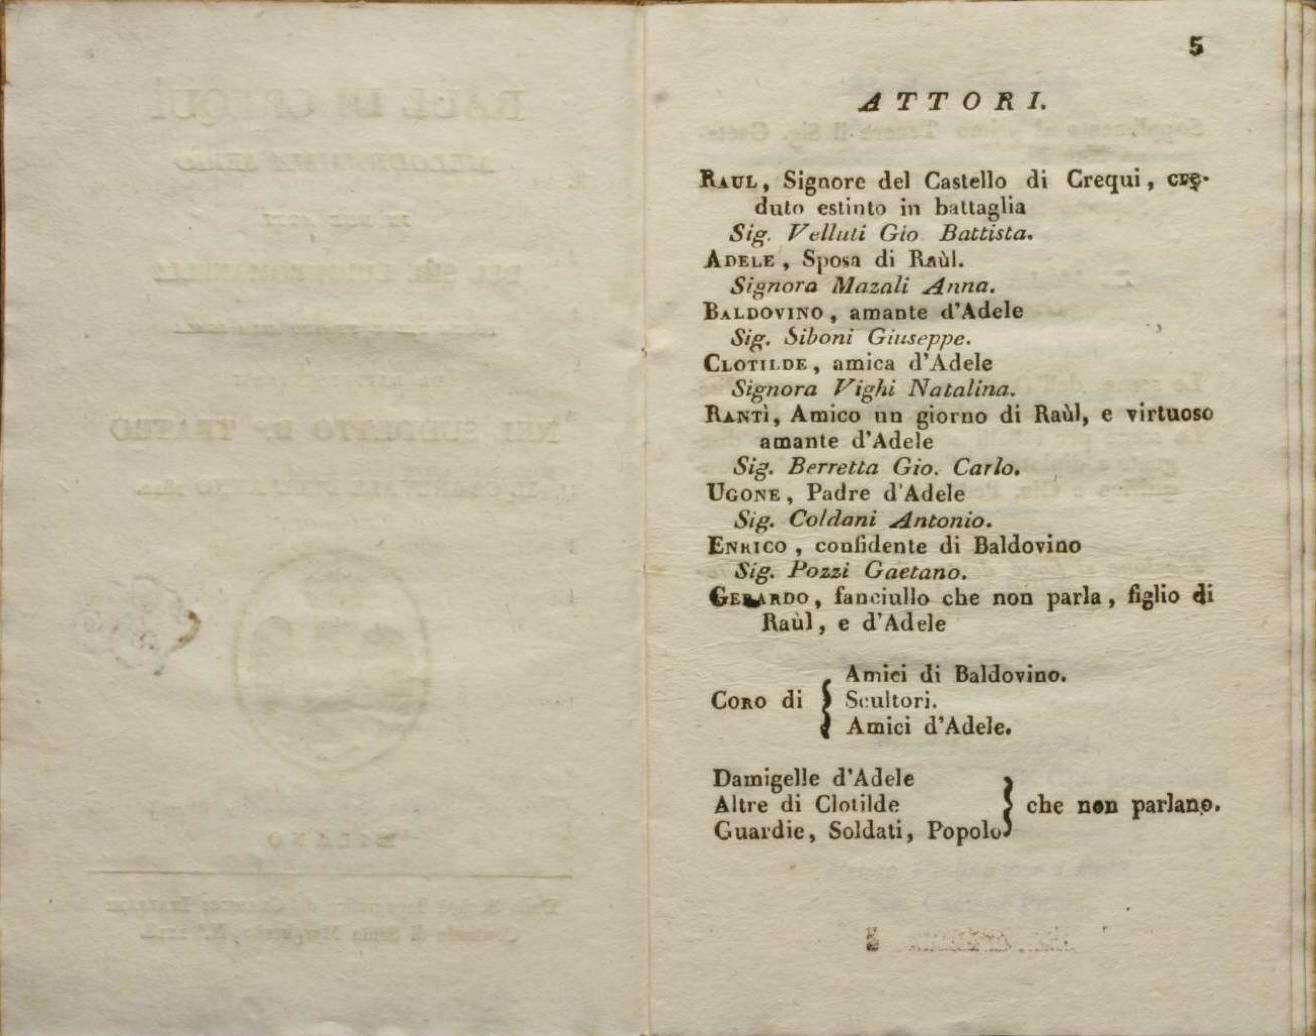 5
ATTORI.
RAUL, Signore del Castello di Crequi, cre-
duto estinto in battaglia
Sig. Velluti Gio Battista.
ADELE, Sposa di Raùl.
Signora Mazali Anna.
BALDOVINO, amante d'Adele
Sig. Siboni Giuseppe.
CLOTILDE, amica d'Adele
Signora Vighi Natalina.
RANTÌ, Amico un giorno di Raùl, e virtuoso
amante d'Adele
Sig. Berretta Gio. Carlo.
UGONE, Padre d'Adele
Sig. Coldani Antonio.
ENRICO, confidente di Baldovino
Sig. Pozzi Gaetano.
GERARDO, fanciullo che non parla, figlio di
Raùl, e d'Adele
CORO di { Amici di Baldovino.
Scultori.
Amici d'Adele.
Damigelle d'Adele
Altre di Clotilde } che non parlano.
Guardie, Soldati, Popolo